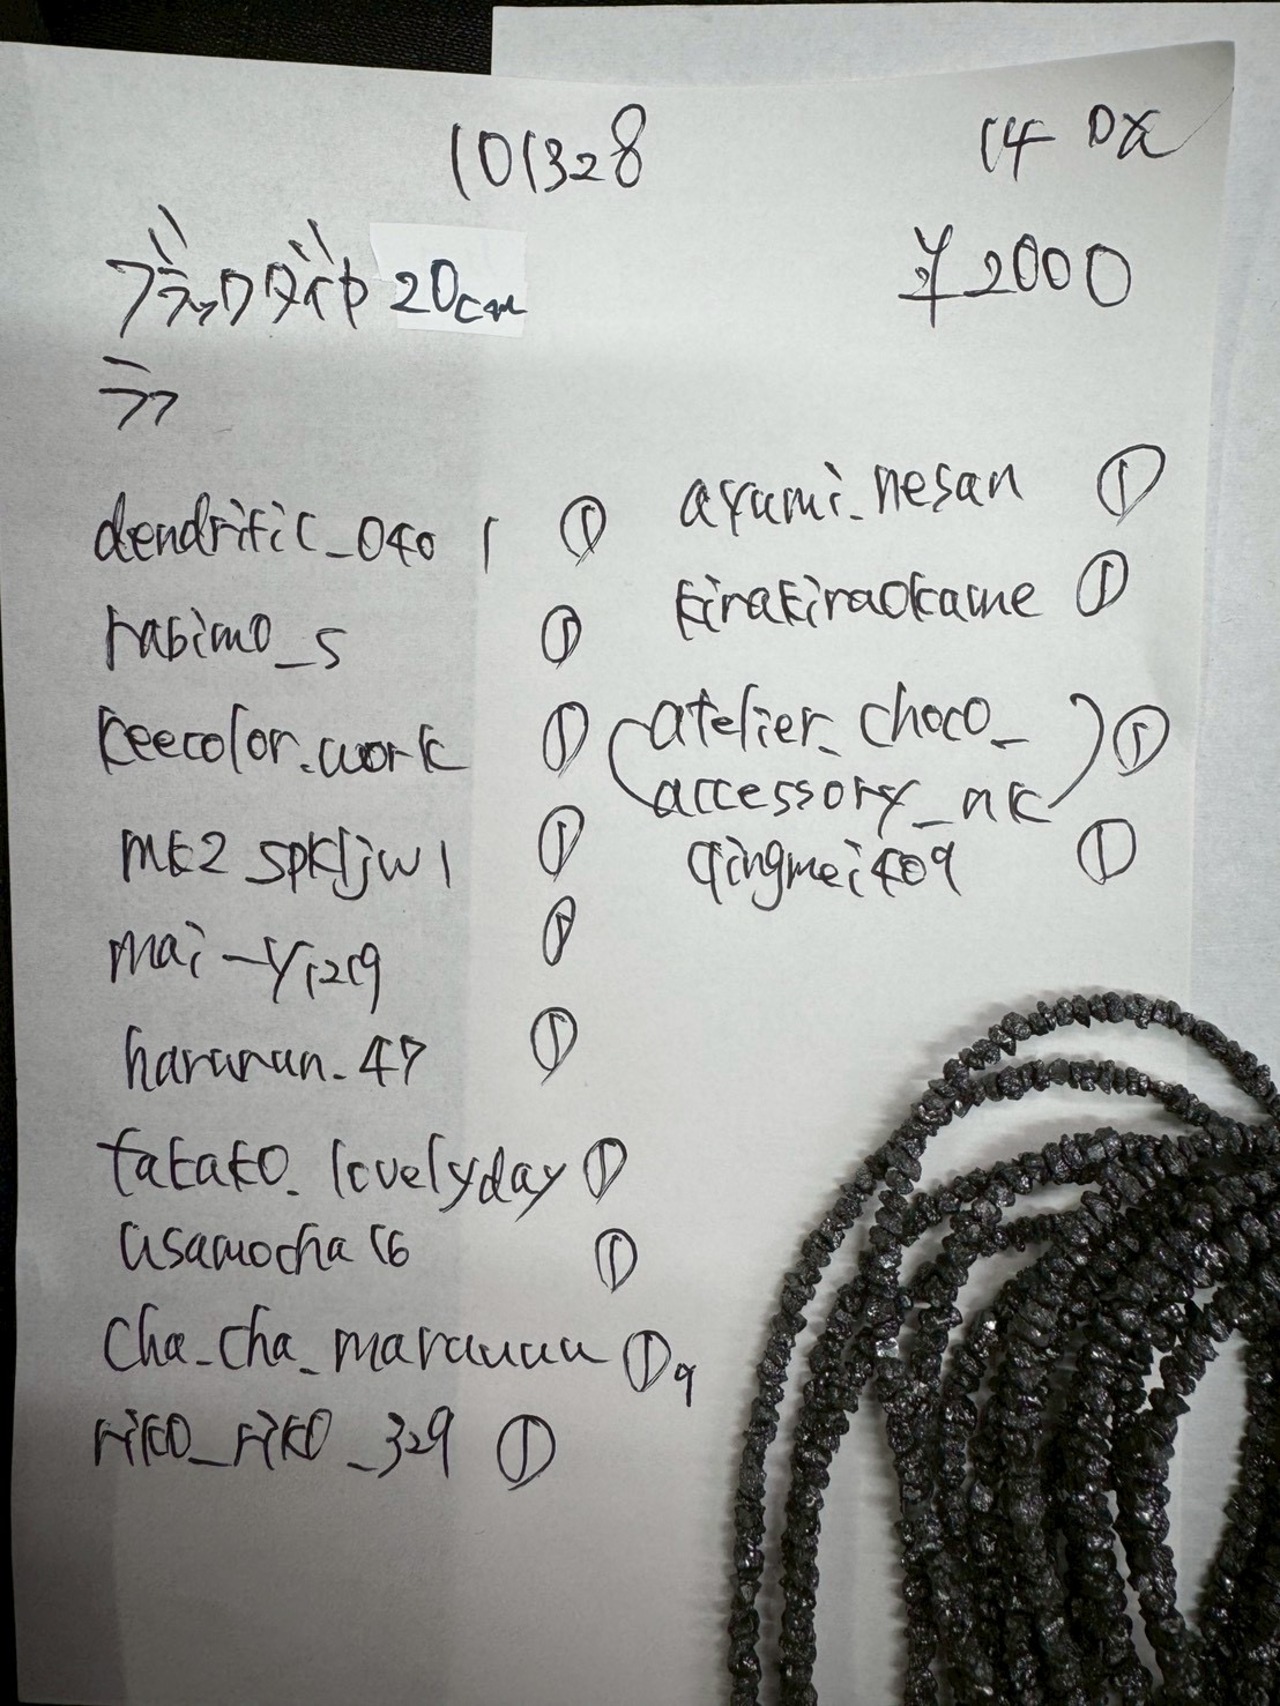 101328
14 px
ブラックダイヤ 20cm
¥2000
ラフ
dendritic_040 1 ①
rabimo_s ①
keecolor.work ①
mk2_spkljw1 ①
mai-y1219 ①
hararun_47 ①
takako.lovelyday ①
usamocha16 ①
cha_cha_maruuuu ①9
riko_riko_329 ①
ayumi_nesan ①
kirakiraokame ①
(atelier_choco_
accessory_nk) ①
qingmei409 ①